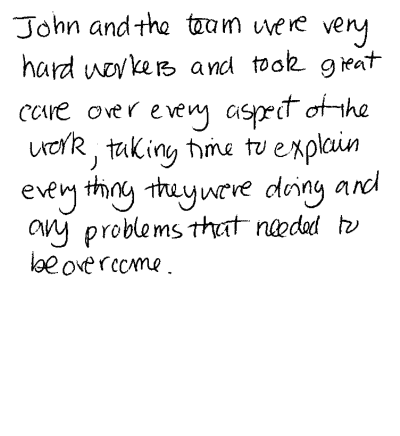 John and the team were very
hard workers and took great
care over every aspect of the
work, taking time to explain
everything they were doing and
any problems that needed to
be overcome.